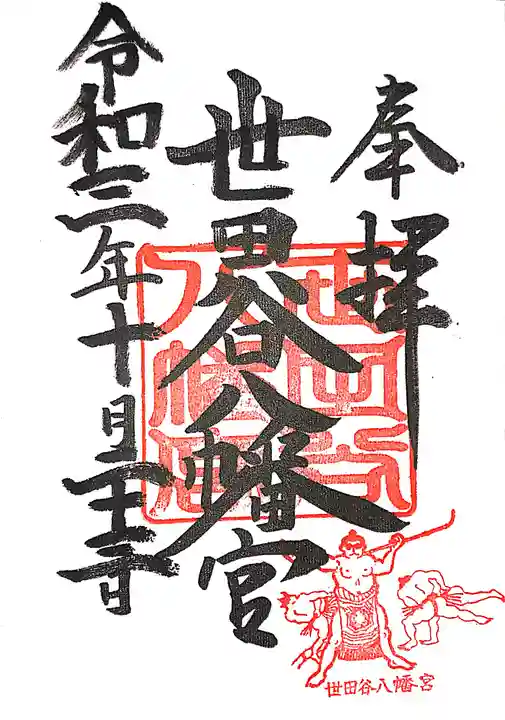 奉拝
世田谷八幡宮
令和三年十月日
世田谷
八幡
世田谷八幡宮